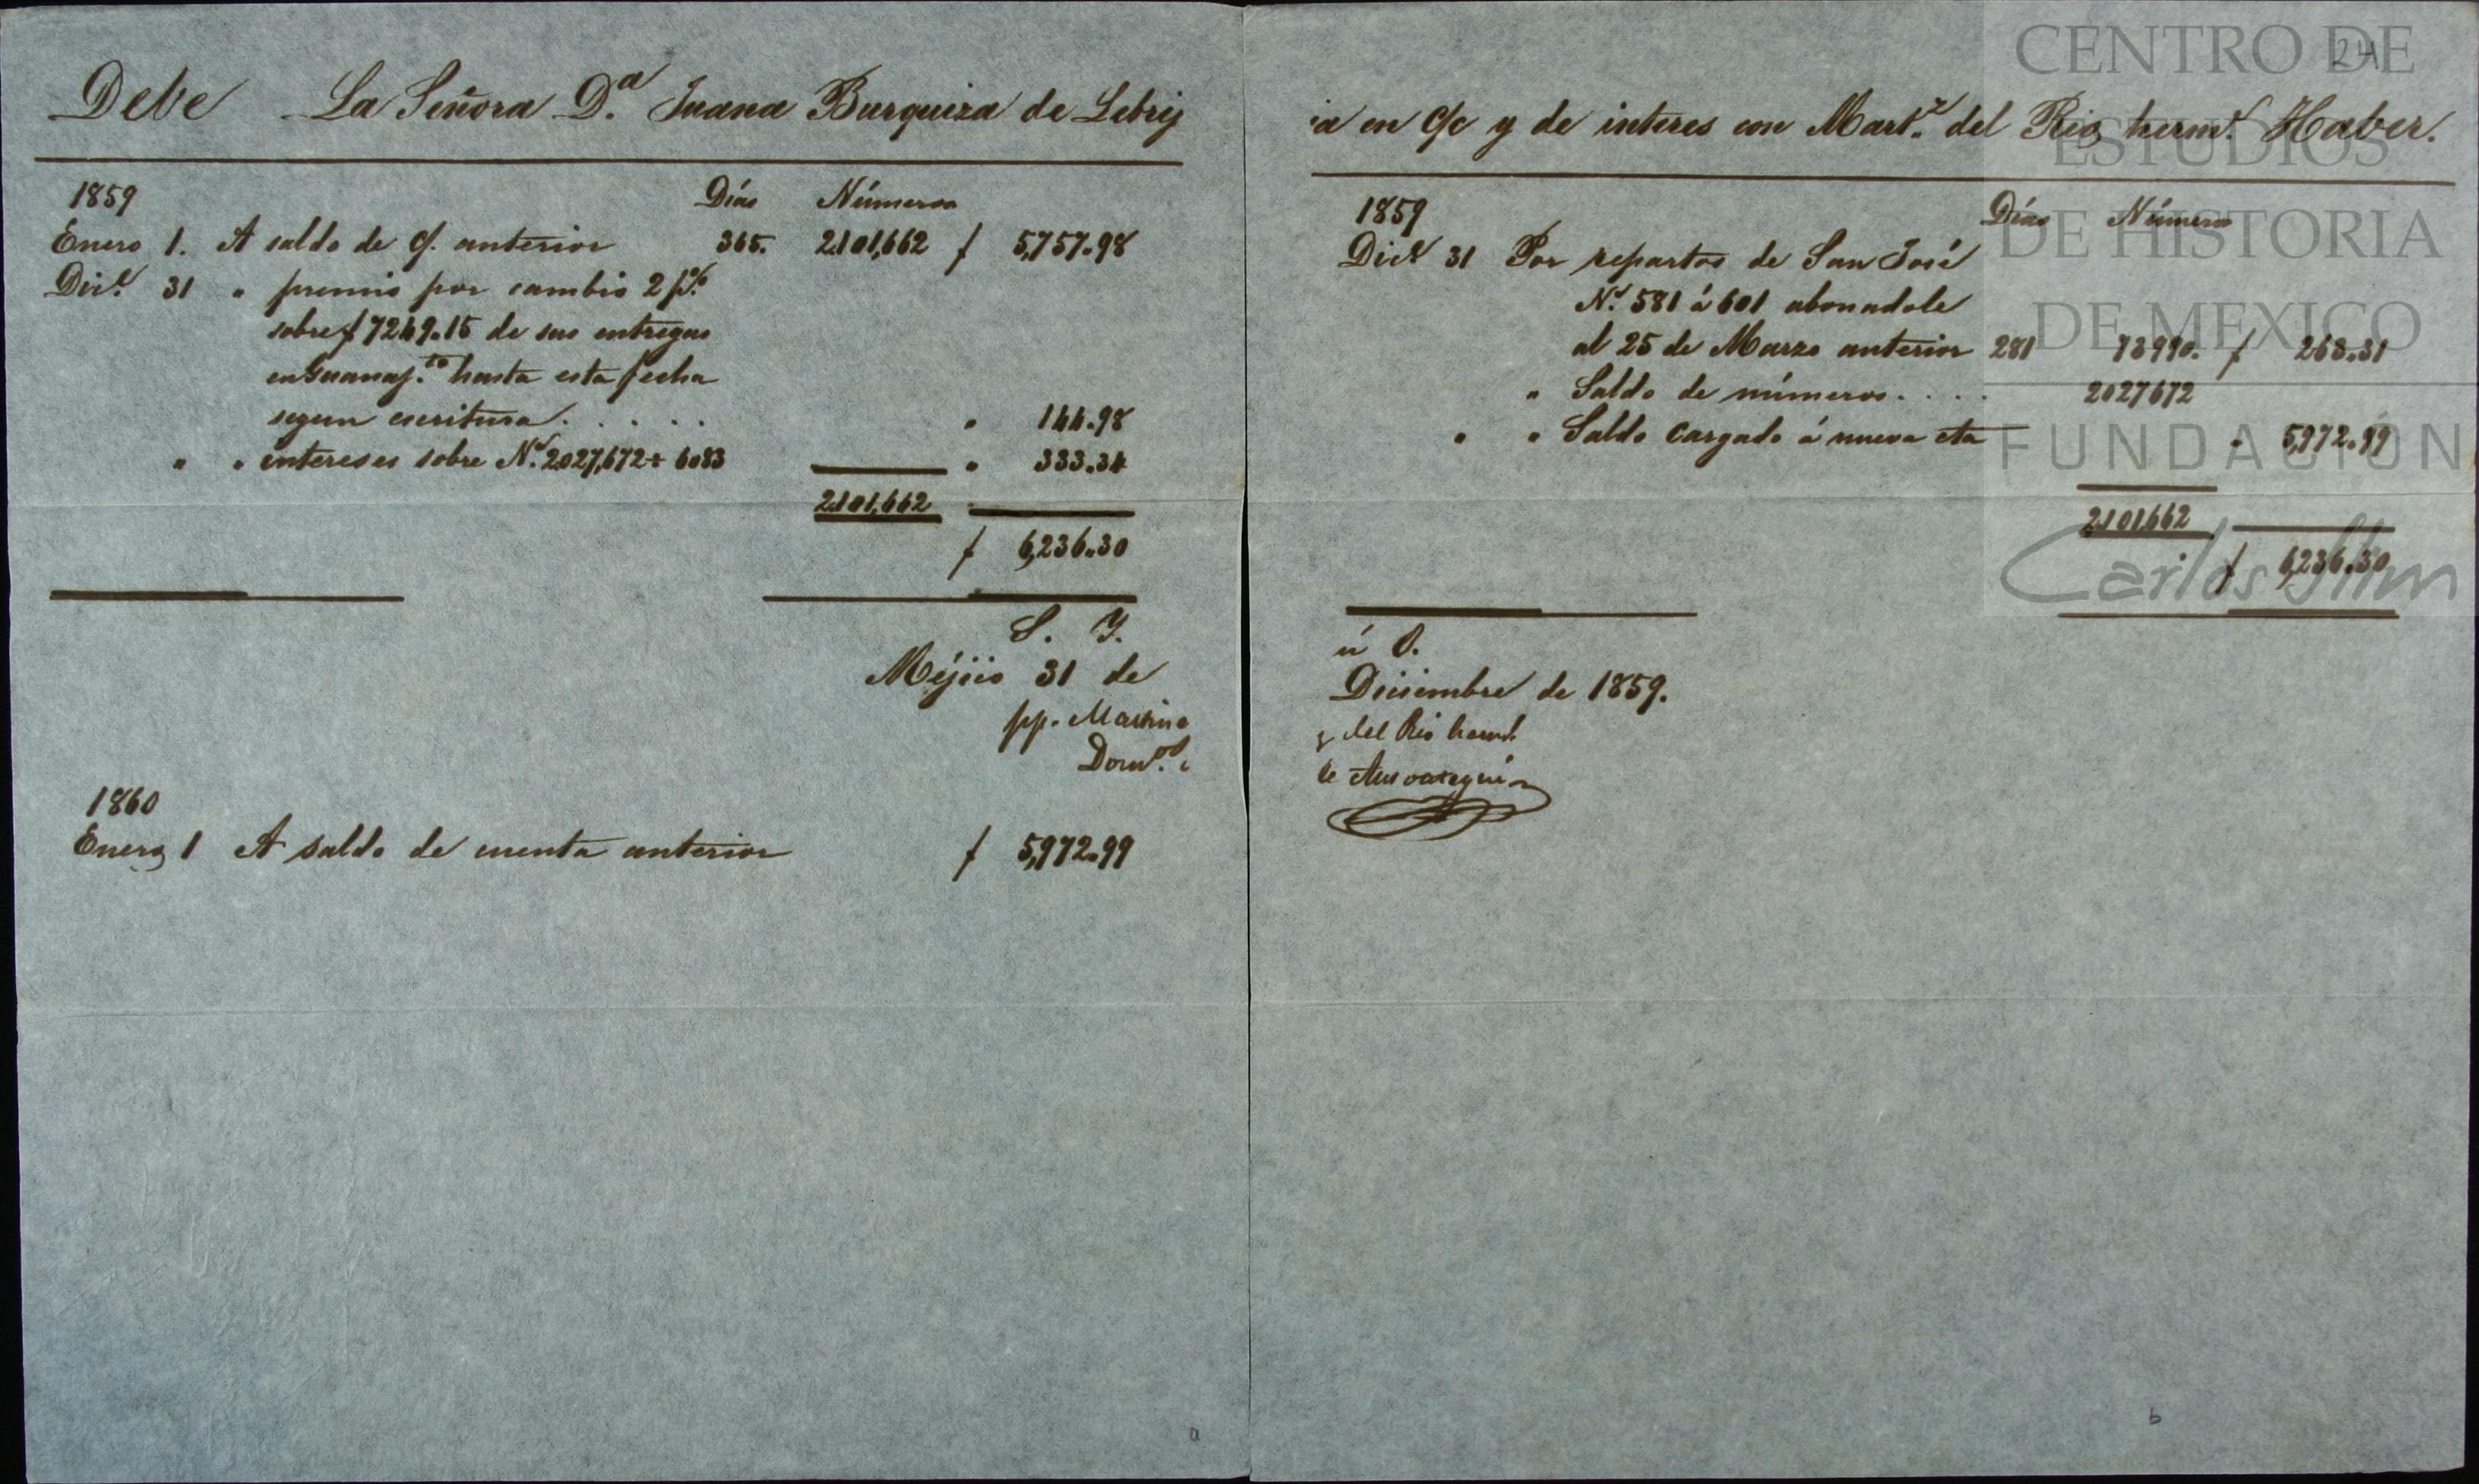 Debe La Señora D.ª Juana Burquiza de Lebrij
1859 Días Números
Enero 1. A saldo de c/. anterior 365. 2.101,662 $ 5,757.98
Dic.e 31 " premio por cambio 2 p%
sobre $ 7249.15 de sus entregas
en Guanaj.to hasta esta fecha
segun escritura. . . . . . " 144.98
" " intereses sobre N.s 2.027,672 ÷ 6083 " 333.34
2.101,662
$ 6,236.30
S. Y.
Méjico 31 de
pp. Martine
Dom.go
1860
Enero 1 A saldo de cuenta anterior $ 5,972.99
a
24
ia en c/c y de interes con Mart.z del Rio herm.s Haber.
1859 Días Números
Dic.e 31 Por repartos de San José
N.s 581 á 601 abonadole
al 25 de Marzo anterior 281 73990. $ 263.31
" Saldo de números. . . . 2027672
" " Saldo cargado á nueva cta " 5,972.99
2.101662
$ 6,236.30
ú O.
Diciembre de 1859.
z del Rio herm.s
b
CENTRO DE
ESTUDIOS
DE HISTORIA
DE MEXICO
FUNDACION
Carlos Slim